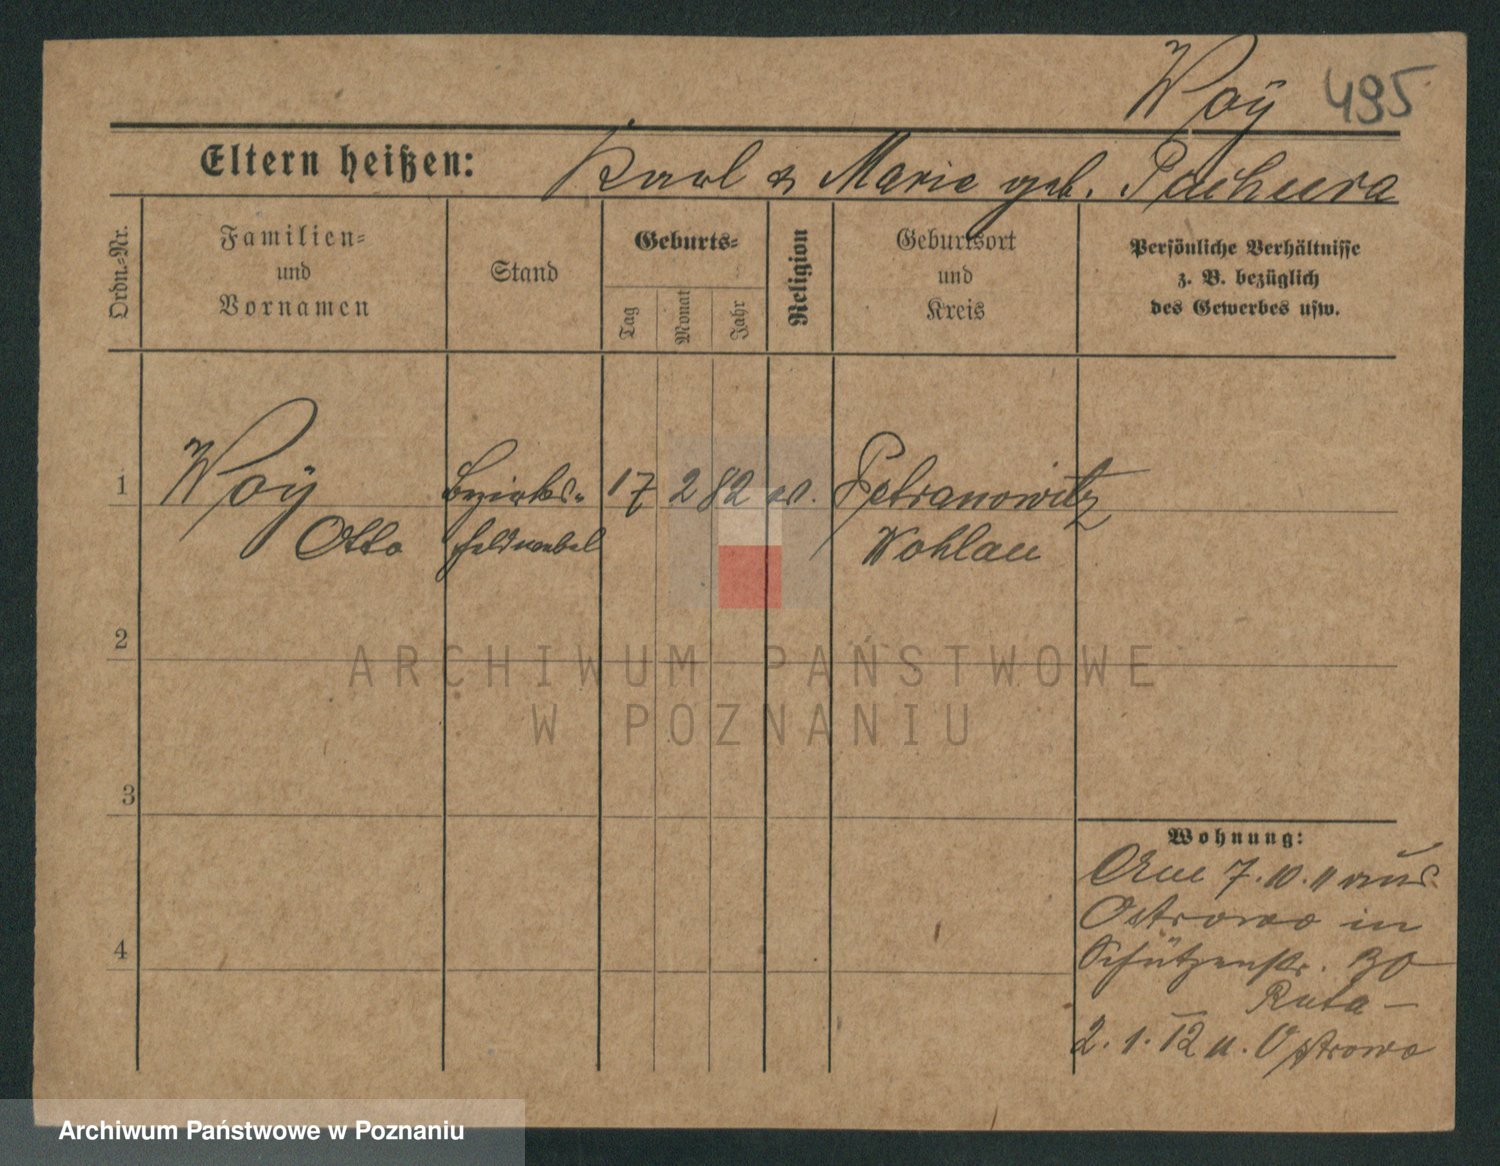 Woÿ 495
Eltern heißen: Karl & Marie geb. Pachura
Ordn.-Nr.
Familien-
und
Vornamen
Stand
Geburts-
Tag
Monat
Jahr
Religion
Geburtsort
und
Kreis
Persönliche Verhältnisse
z. B. bezüglich
des Gewerbes usw.
1 Woÿ Bezirks- 17 2 82 ev. Petranowitz
Otto feldwebel Wohlau
2
3
4
Wohnung:
Am 7.10.11 aus
Ostrowo in
Schützenstr. 30
2.1.12 n. Ostrowo
ARCHIWUM PAŃSTWOWE
W POZNANIU
Archiwum Państwowe w Poznaniu